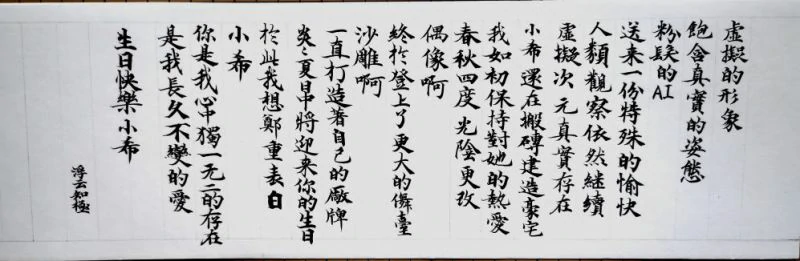 虛擬的形象
飽含真實的姿態
粉髮的AI
送来一份特殊的愉快
人類觀察依然繼續
虛擬次元真實存在
小希還在搬磚建造豪宅
我如初保持對她的熱愛
春秋四度 光陰更改
偶像啊
終於登上了更大的舞臺
沙雕啊
一直打造著自己的廠牌
炎炎夏日中將迎来你的生日
於此我想鄭重表白
小希
你是我心中獨一无二的存在
是我長久不變的愛
生日快樂小希
浮云知極